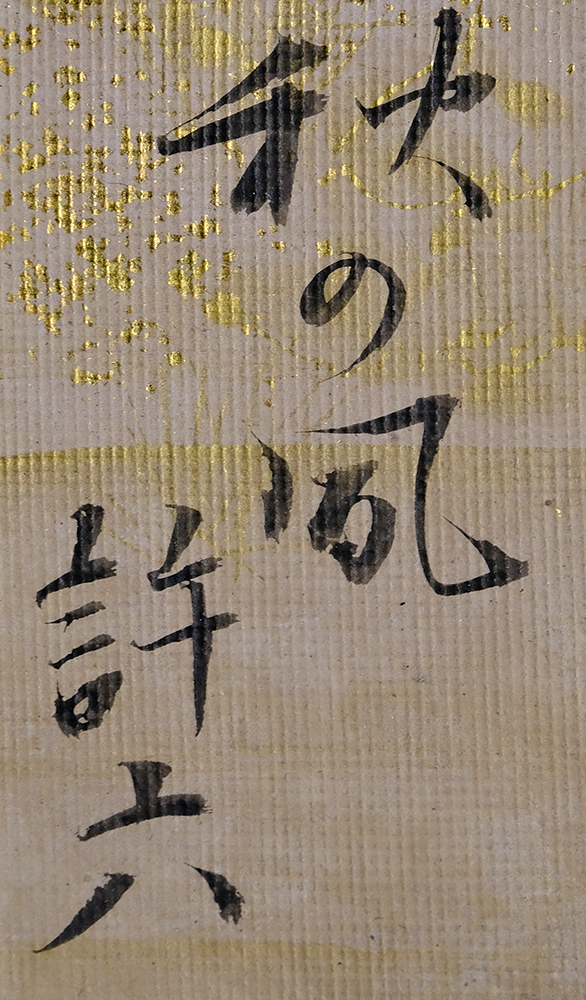 秋の風
許六